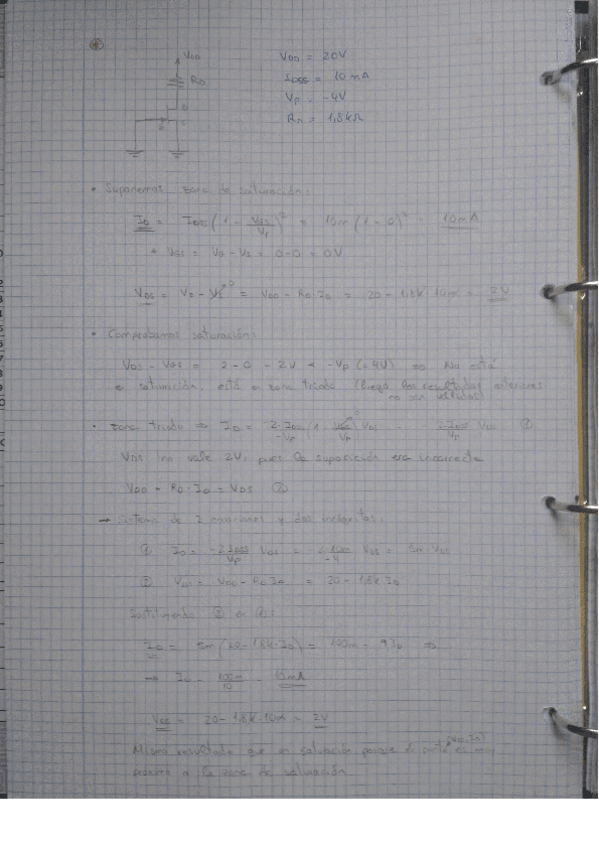 VDD
RD
D
S
VDD = 20V
IDSS = 10 mA
Vp = -4V
RD = 1,8kΩ
• Suponemos zona de saturación:
ID = IDSS (1 - VGS/Vp)² = 10m (1-0)² = 10mA
* VGS = VG - VS = 0-0 = 0V
VDS = VD - VS⁰ = VDD - RD·ID = 20 - 1,8k·10m = 2V
• Comprobamos saturación:
VDS - VGS = 2-0 = 2V < -Vp (=4V) ⇒ No está
en saturación, está en zona triodo (luego los resultados anteriores
no son válidos)
• Zona triodo ⇒ ID = 2·IDSS/-Vp (1 - VGS⁰/Vp) VDS = -2·IDSS/Vp VDS ①
VDS no vale 2V, pues la suposición era incorrecta
VDD - RD·ID = VDS ②
→ Sistema de 2 ecuaciones y dos incógnitas:
① ID = -2IDSS/Vp VDS = -2·10m/-4 VDS = 5m·VDS
② VDS = VDD - RD ID = 20 - 1,8k ID
Sustituyendo ② en ①:
ID = 5m (20 - 1,8k·ID) = 100m - 9ID ⇒
→ ID = 100m/10 = 10mA
= 20 - 1,8k·10m = 2V
Mismo resultado que en saturación porque el punto es muy
próximo a la zona de saturación